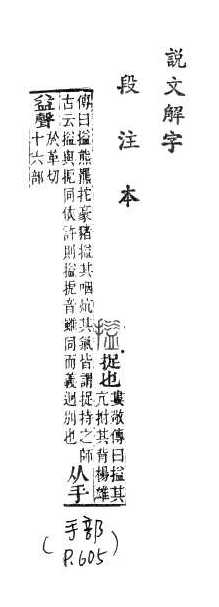 説文解字
段注本
搤
捉也
婁敬傳曰搤其
亢拊其背楊雄
傳曰搤熊羆拕豪豬搤其咽炕其氣皆謂捉持之師
古云搤與扼同依許則搤扼音雖同而義迥別也
从手
益聲
於革切
十六部
(手部
P.605)